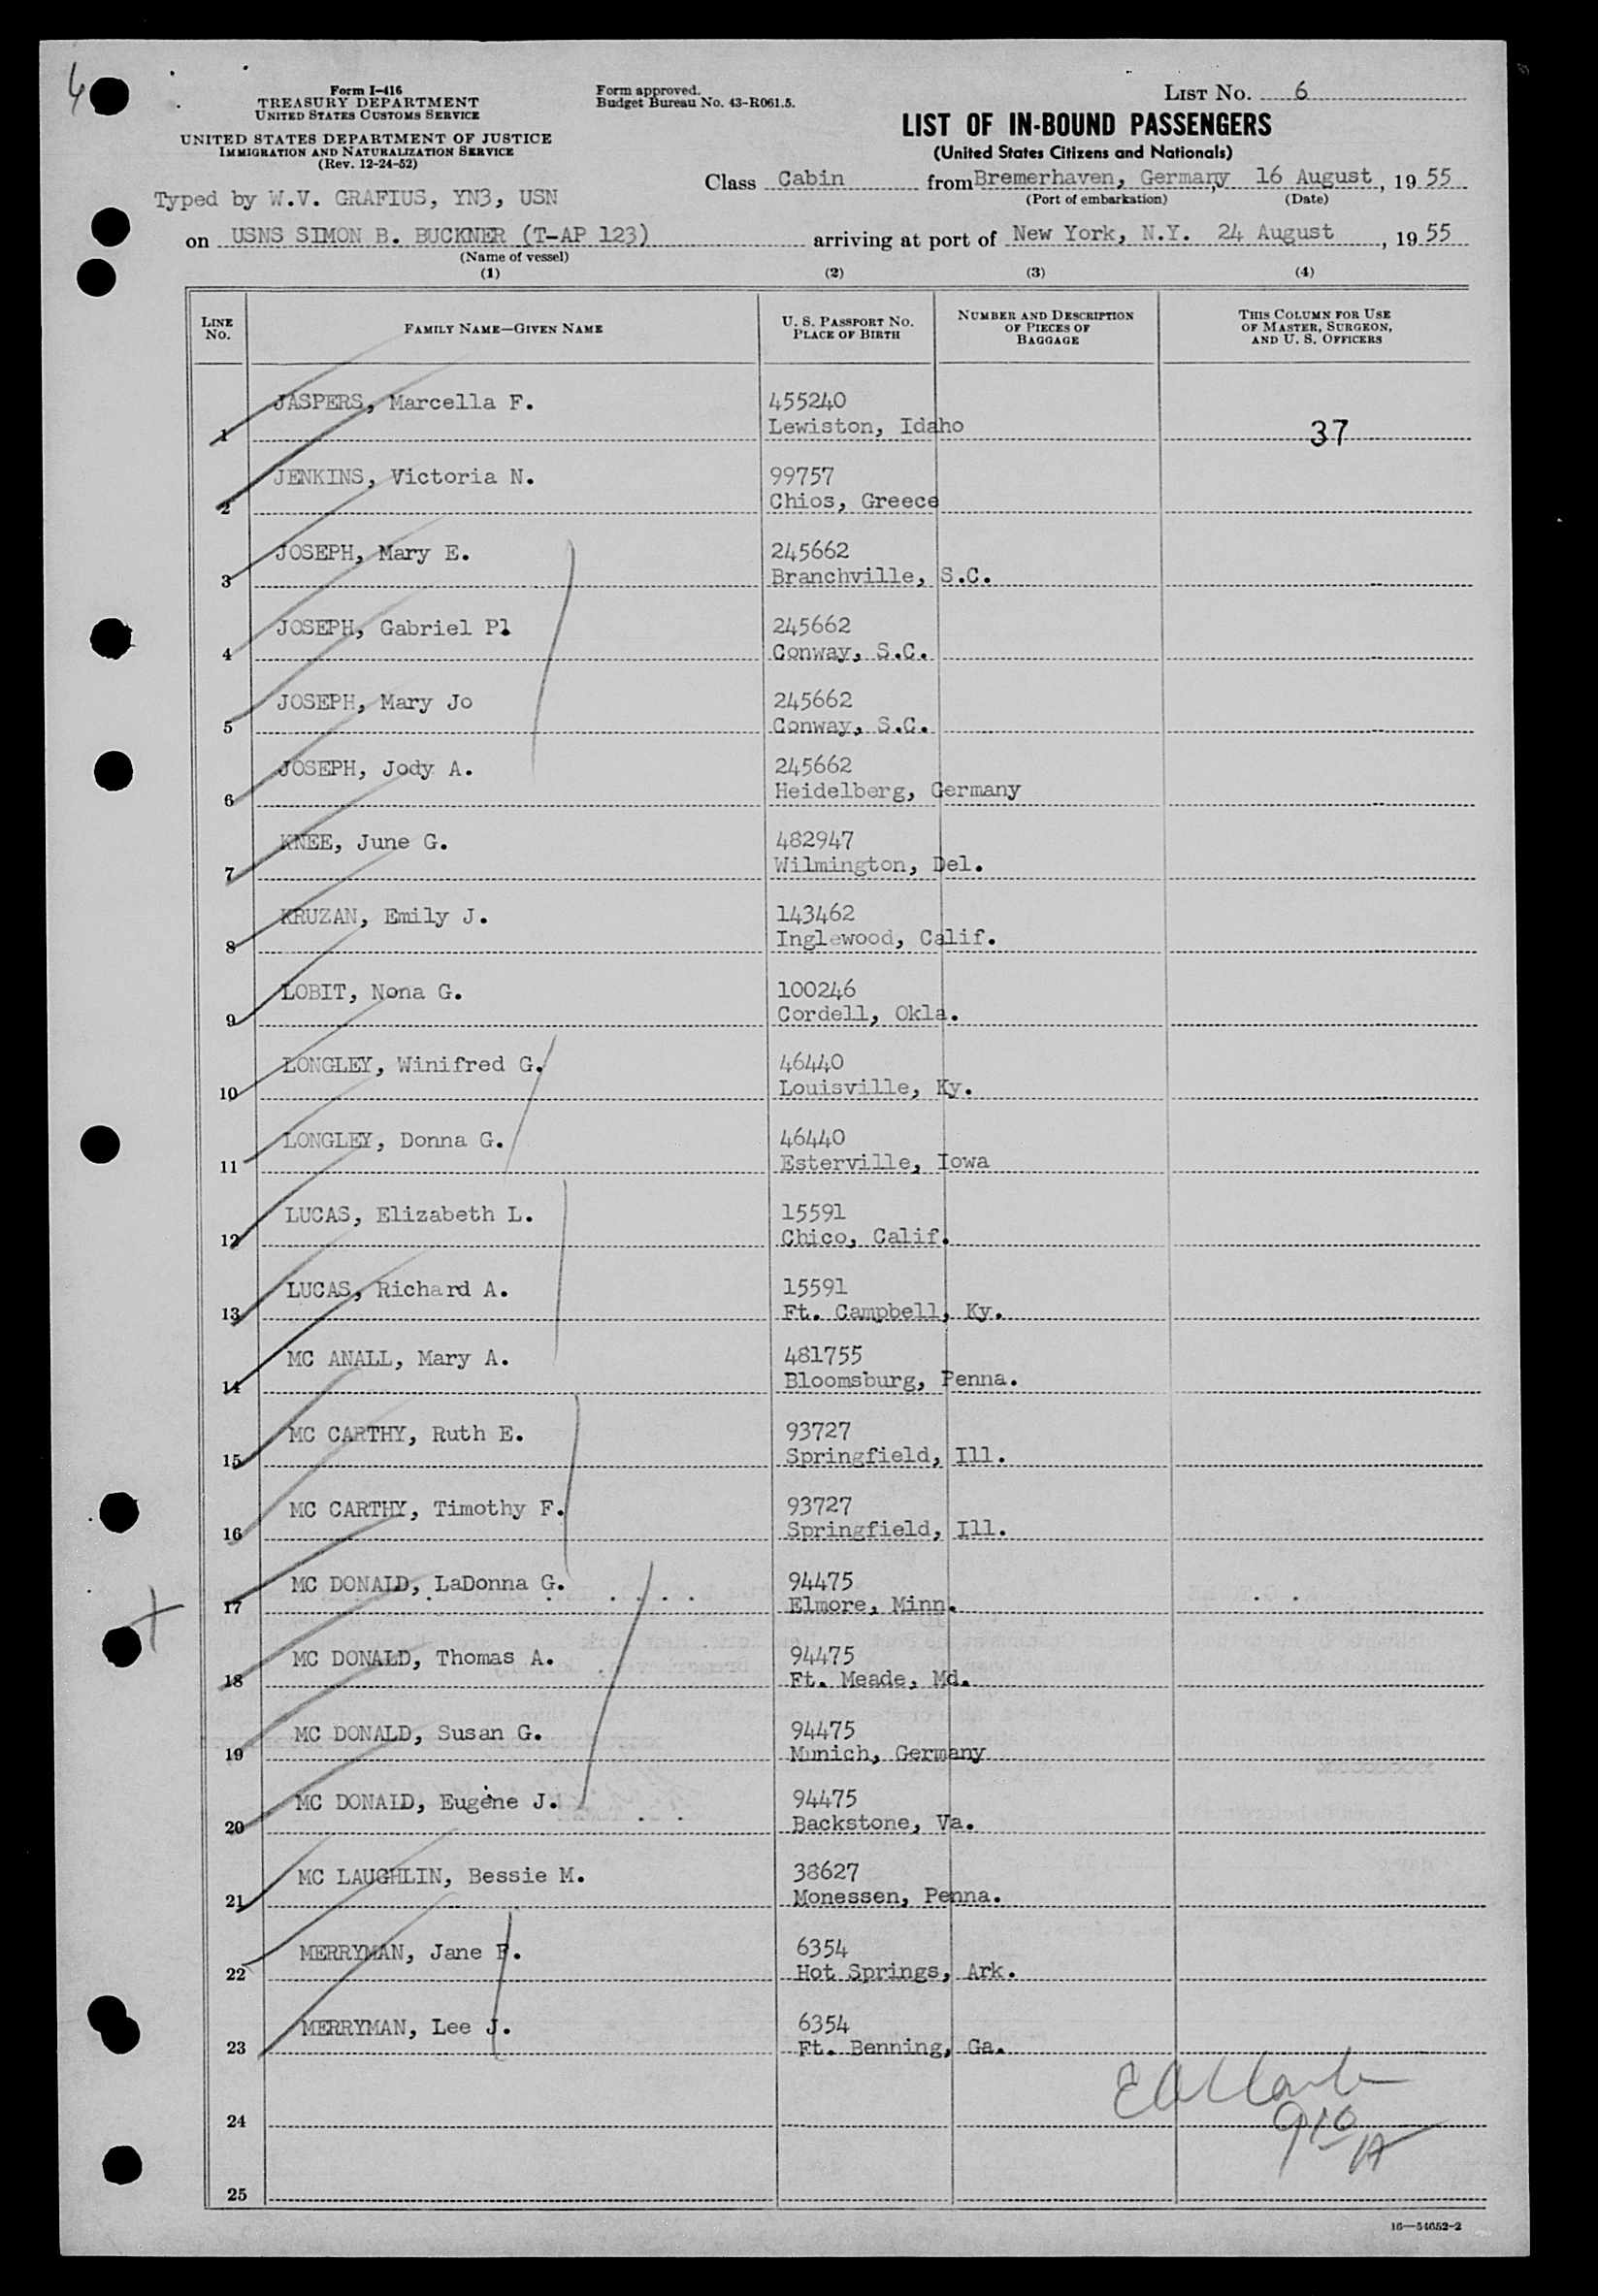 6
Form I-416
TREASURY DEPARTMENT
UNITED STATES CUSTOMS SERVICE
UNITED STATES DEPARTMENT OF JUSTICE
IMMIGRATION AND NATURALIZATION SERVICE
(Rev. 12-24-52)
Form approved.
Budget Bureau No. 43-R061.5.
LIST No. 6
LIST OF IN-BOUND PASSENGERS
(United States Citizens and Nationals)
Typed by W.V. GRAFIUS, YN3, USN
Class Cabin from Bremerhaven, Germany, 16 August, 19 55
(Port of embarkation) (Date)
on USNS SIMON B. BUCKNER (T-AP 123) arriving at port of New York, N.Y. 24 August, 19 55
(Name of vessel)
(1) (2) (3) (4)
LINE No. FAMILY NAME—GIVEN NAME U. S. PASSPORT NO. PLACE OF BIRTH NUMBER AND DESCRIPTION OF PIECES OF BAGGAGE THIS COLUMN FOR USE OF MASTER, SURGEON, AND U. S. OFFICERS
JASPERS, Marcella F. 455240
1 Lewiston, Idaho 37
JENKINS, Victoria N. 99757
2 Chios, Greece
JOSEPH, Mary E. 245662
3 Branchville, S.C.
JOSEPH, Gabriel Pl. 245662
4 Conway, S.C.
JOSEPH, Mary Jo 245662
5 Conway, S.C.
JOSEPH, Jody A. 245662
6 Heidelberg, Germany
KNEE, June G. 482947
7 Wilmington, Del.
KRUZAN, Emily J. 143462
8 Inglewood, Calif.
LOBIT, Nona G. 100246
9 Cordell, Okla.
LONGLEY, Winifred G. 46440
10 Louisville, Ky.
LONGLEY, Donna G. 46440
11 Esterville, Iowa
LUCAS, Elizabeth L. 15591
12 Chico, Calif.
LUCAS, Richard A. 15591
13 Ft. Campbell, Ky.
MC ANALL, Mary A. 481755
14 Bloomsburg, Penna.
MC CARTHY, Ruth E. 93727
15 Springfield, Ill.
MC CARTHY, Timothy F. 93727
16 Springfield, Ill.
MC DONALD, LaDonna G. 94475
17 Elmore, Minn.
MC DONALD, Thomas A. 94475
18 Ft. Meade, Md.
MC DONALD, Susan G. 94475
19 Munich, Germany
MC DONALD, Eugene J. 94475
20 Backstone, Va.
MC LAUGHLIN, Bessie M. 38627
21 Monessen, Penna.
MERRYMAN, Jane F. 6354
22 Hot Springs, Ark.
MERRYMAN, Lee J. 6354
23 Ft. Benning, Ga.
24
25
16—54652-2